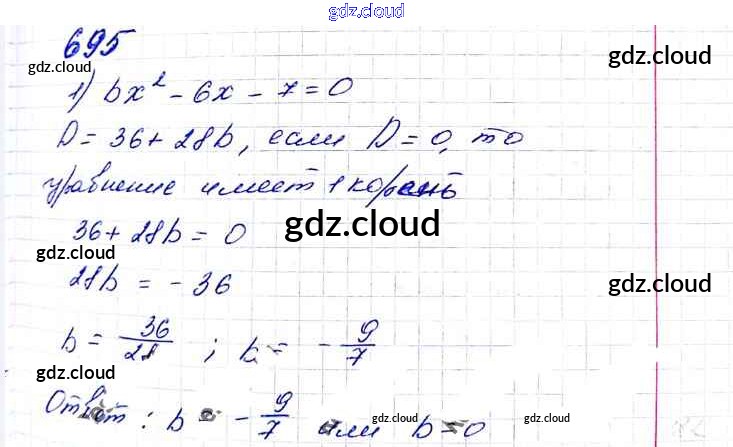 gdz.cloud
695
gdz.cloud
gdz.cloud
1) bx² - 6x - 7 = 0
D = 36 + 28b, если D = 0, то
уравнение имеет 1 корень
gdz.cloud
36 + 28b = 0
gdz.cloud
28b = - 36
gdz.cloud
b = 36/28 ; b = - 9/7
gdz.cloud
Ответ: b = - 9/7 или b = 0
gdz.cloud
gdz.cloud